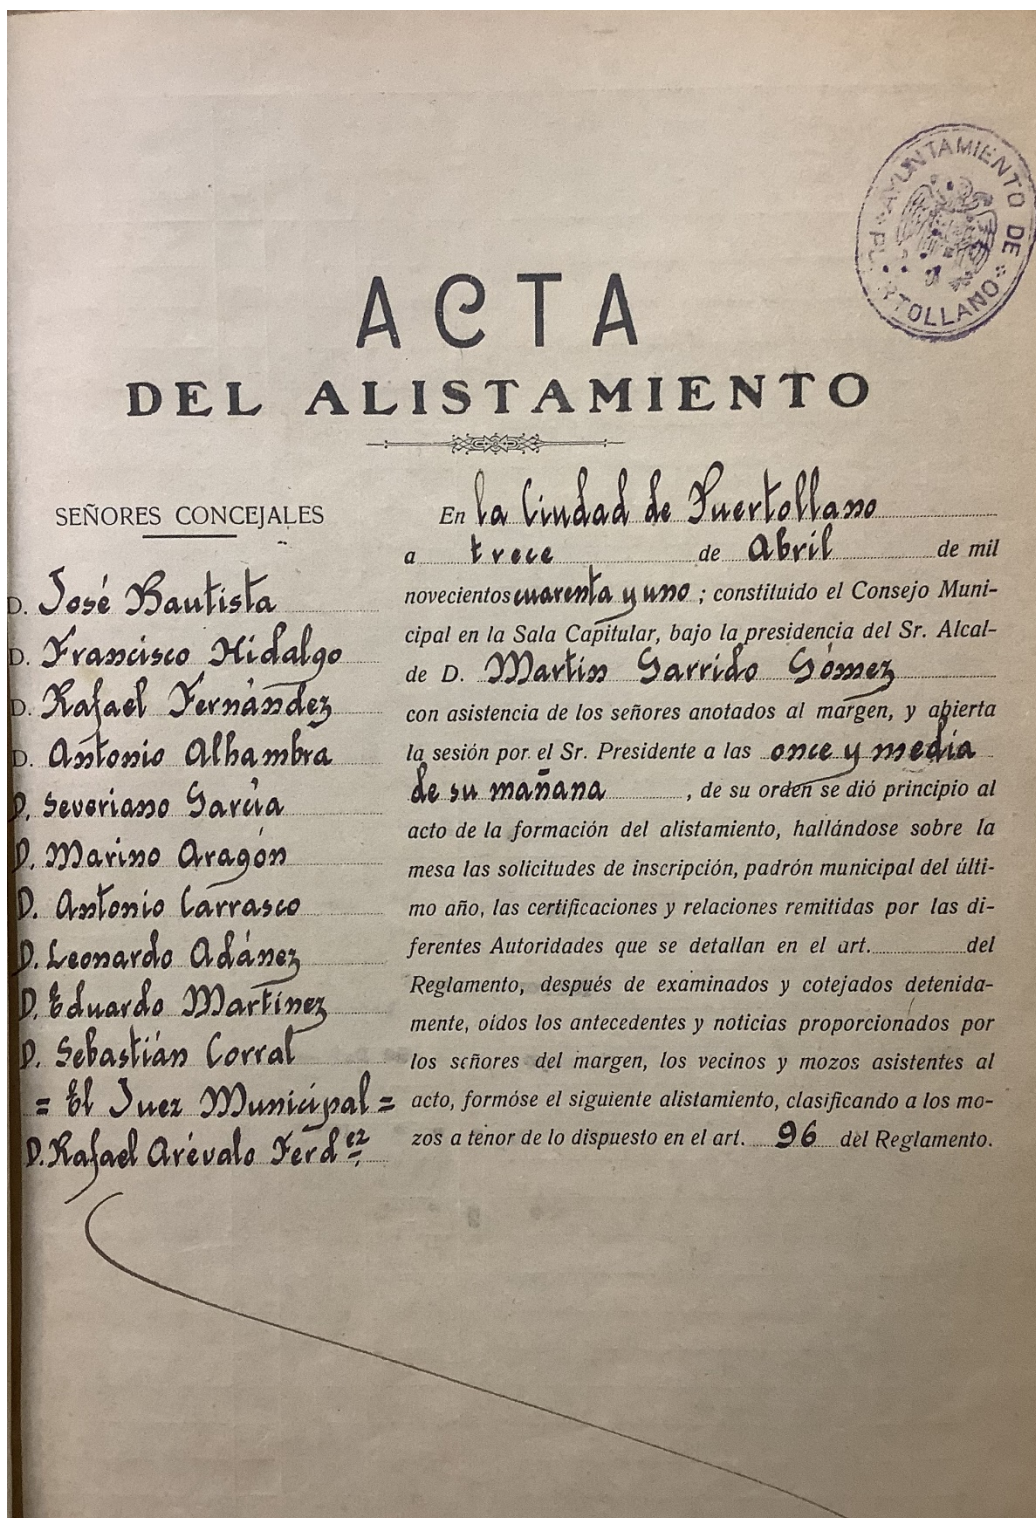 AYUNTAMIENTO DE
PUERTOLLANO
ACTA
DEL ALISTAMIENTO
SEÑORES CONCEJALES
D. José Bautista
D. Francisco Hidalgo
D. Rafael Fernández
D. Antonio Alhambra
D. Severiano García
D. Marino Aragón
D. Antonio Carrasco
D. Leonardo Adánez
D. Eduardo Martínez
D. Sebastián Corral
= El Juez Municipal =
D. Rafael Arévalo Ferdez.
En la Ciudad de Puertollano
a trece de Abril de mil
novecientos cuarenta y uno ; constituido el Consejo Muni-
cipal en la Sala Capitular, bajo la presidencia del Sr. Alcal-
de D. Martín Garrido Gómez
con asistencia de los señores anotados al margen, y abierta
la sesión por el Sr. Presidente a las once y media
de su mañana , de su orden se dió principio al
acto de la formación del alistamiento, hallándose sobre la
mesa las solicitudes de inscripción, padrón municipal del últi-
mo año, las certificaciones y relaciones remitidas por las di-
ferentes Autoridades que se detallan en el art. del
Reglamento, después de examinados y cotejados detenida-
mente, oídos los antecedentes y noticias proporcionados por
los señores del margen, los vecinos y mozos asistentes al
acto, formóse el siguiente alistamiento, clasificando a los mo-
zos a tenor de lo dispuesto en el art. 96 del Reglamento.